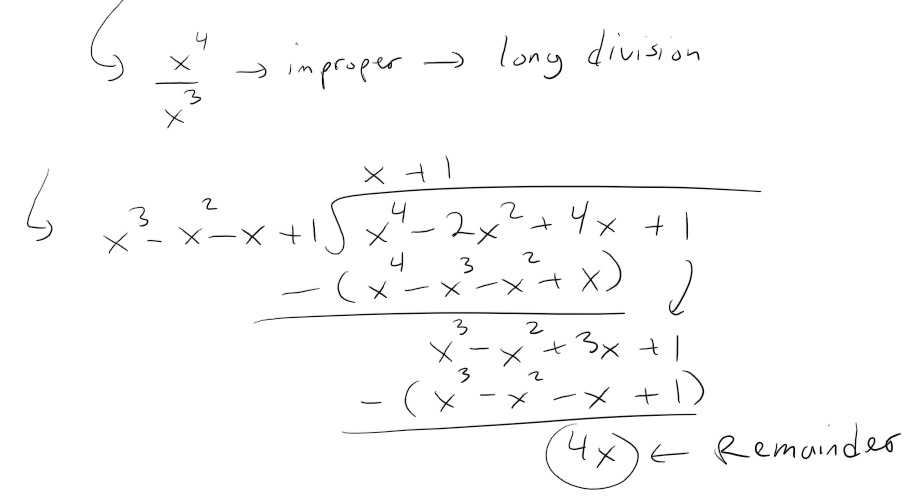 ↳ x⁴/x³ → improper → long division
x + 1
↳ x³ - x² - x + 1 ⟌ x⁴ - 2x² + 4x + 1
- (x⁴ - x³ - x² + x) ↓
x³ - x² + 3x + 1
- (x³ - x² - x + 1)
4x ← Remainder